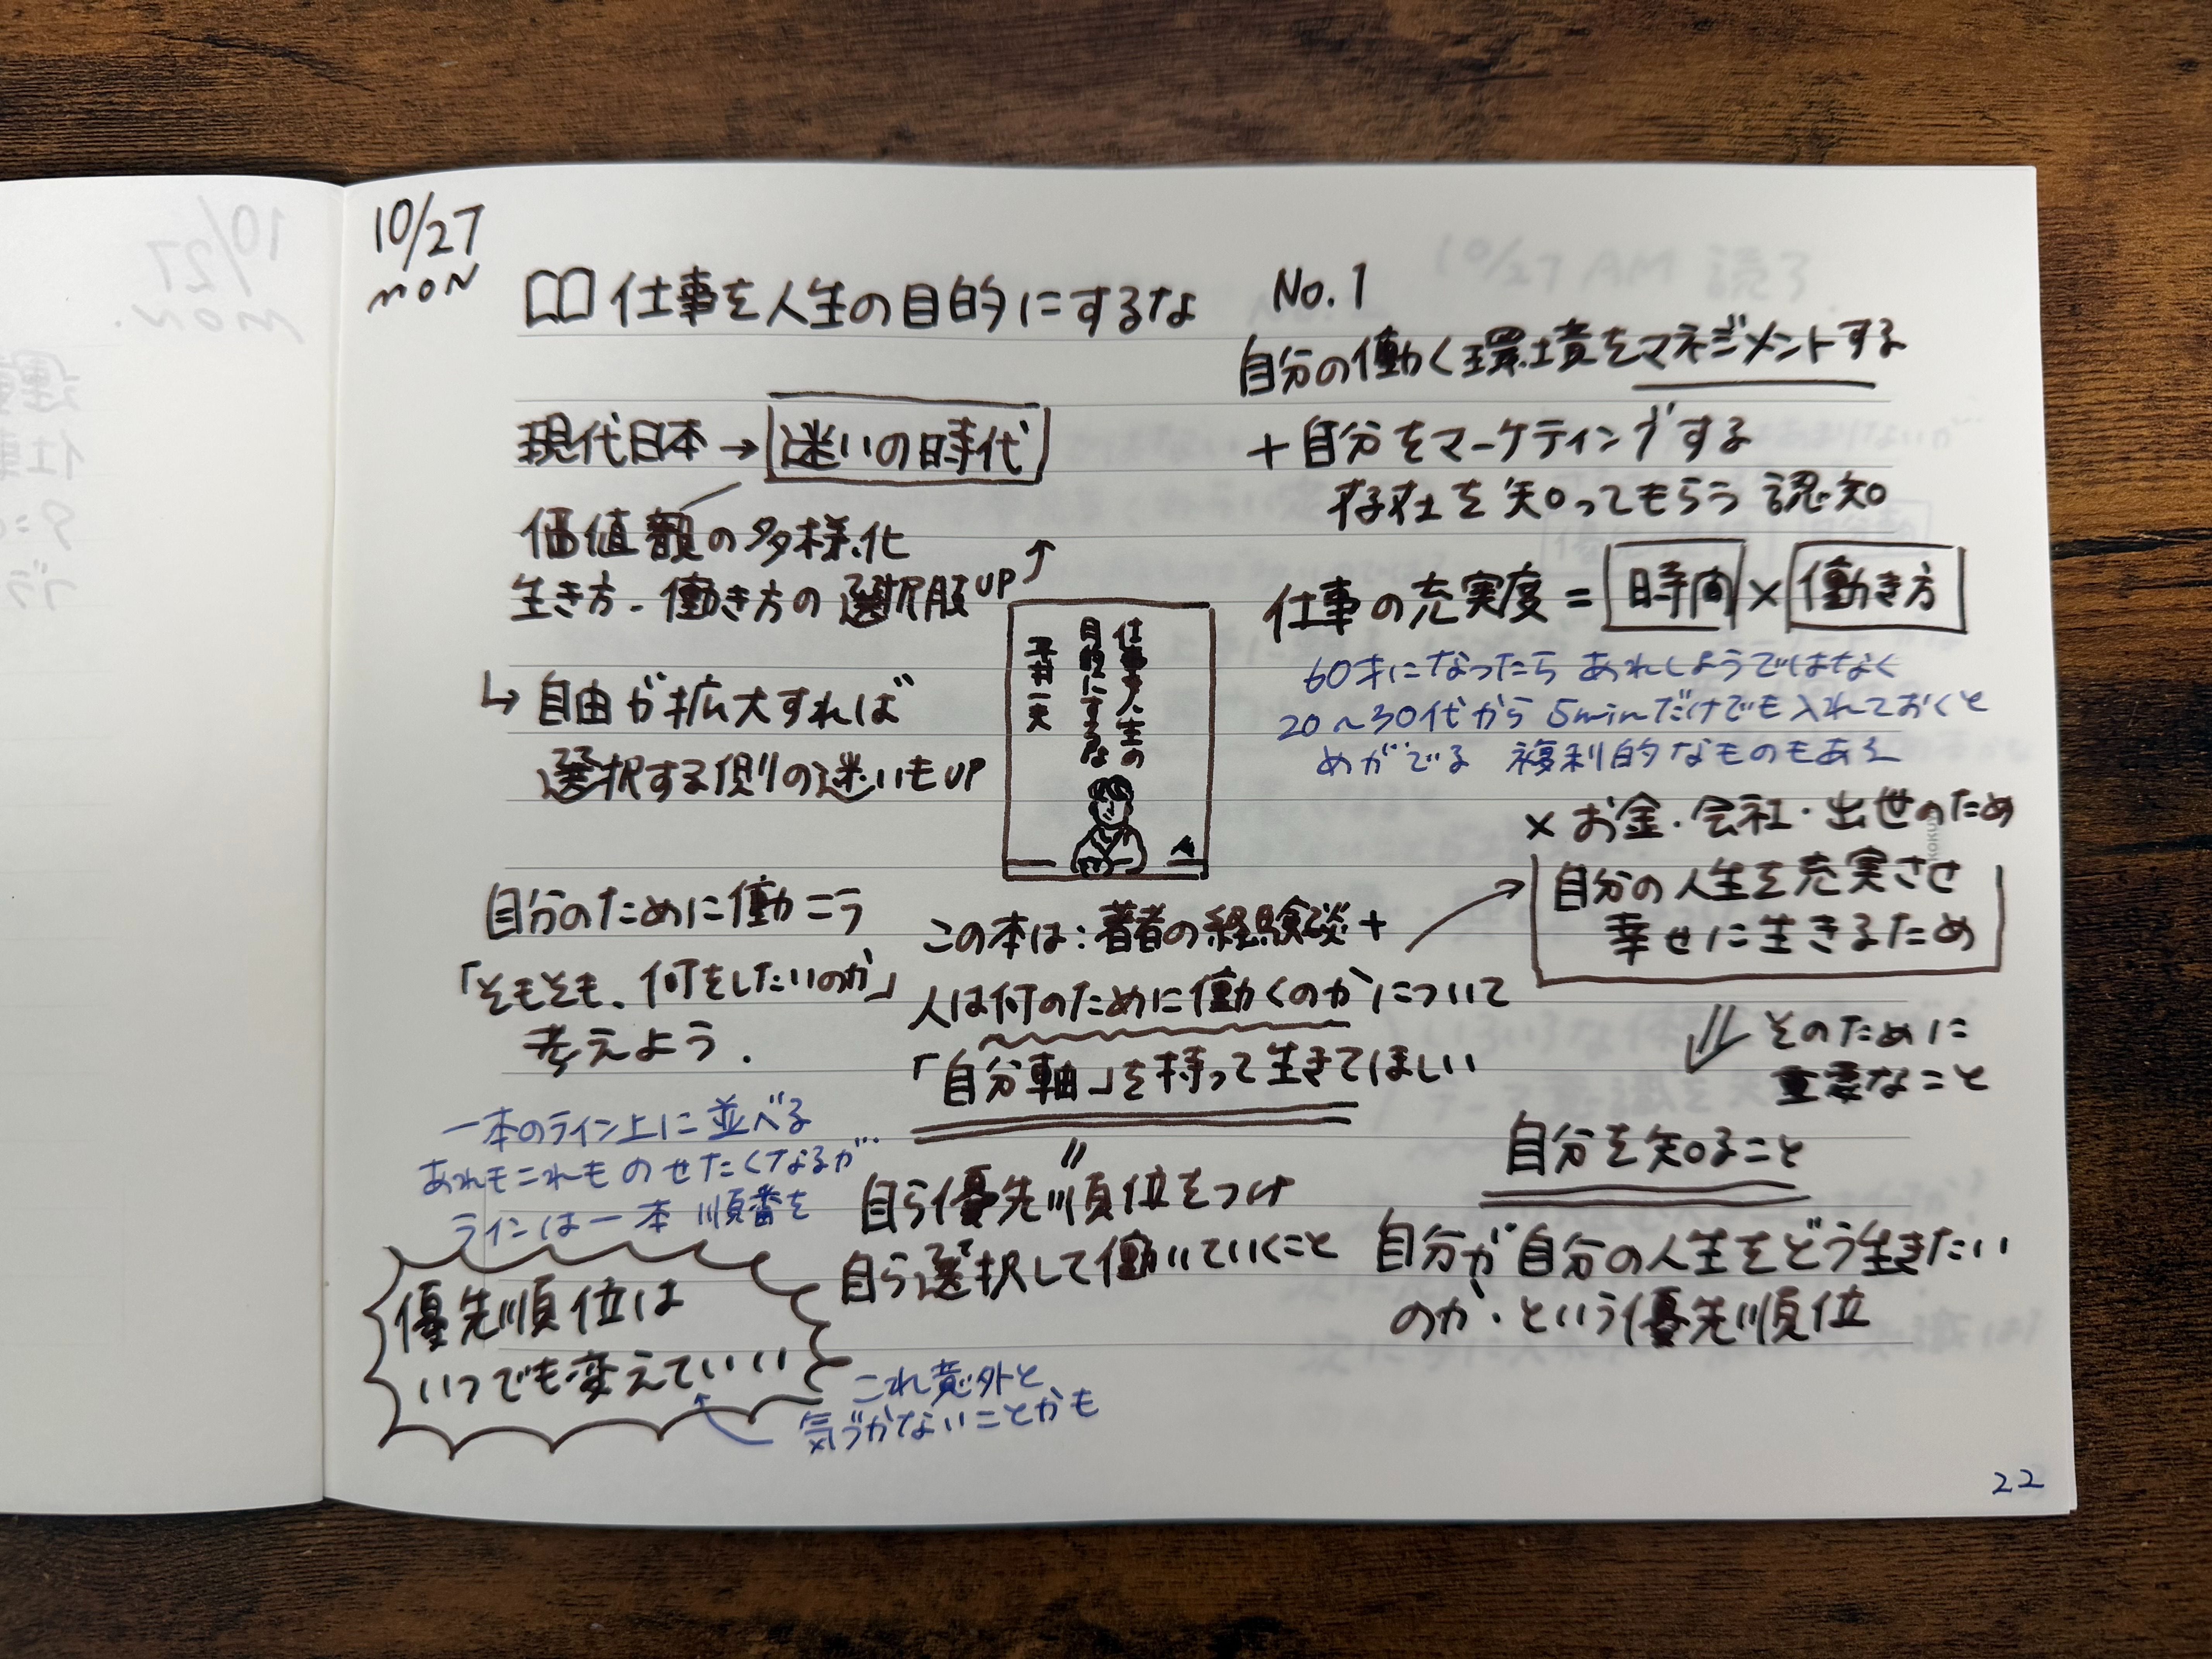 10/27
MON
仕事を人生の目的にするな
現代日本→迷いの時代
価値観の多様化
生き方・働き方の選択肢UP↑
↳自由が拡大すれば
選択する側の迷いもUP
仕事を人生の
目的にするな
平井一夫
自分のために働こう
「そもそも、何をしたいのか」
考えよう.
一本のライン上に並べる
あれもこれものせたくなるが…
ラインは一本 順番を
優先順位は
いつでも変えていい
これ意外と
気づかないことかも
この本は:著者の経験談+
人は何のために働くのかについて
「自分軸」を持って生きてほしい
〃
自ら優先順位をつけ
自ら選択して働いていくこと
No.1
自分の働く環境をマネジメントする
+自分をマーケティングする
存在を知ってもらう 認知
仕事の充実度=時間×働き方
60才になったら あれしようではなく
20〜30代から 5minだけでも入れておくと
めがでる 複利的なものもある
× お金・会社・出世のため
→自分の人生を充実させ
幸せに生きるため
そのために
重要なこと
自分を知ること
自分が自分の人生をどう生きたい
のか・という優先順位
22